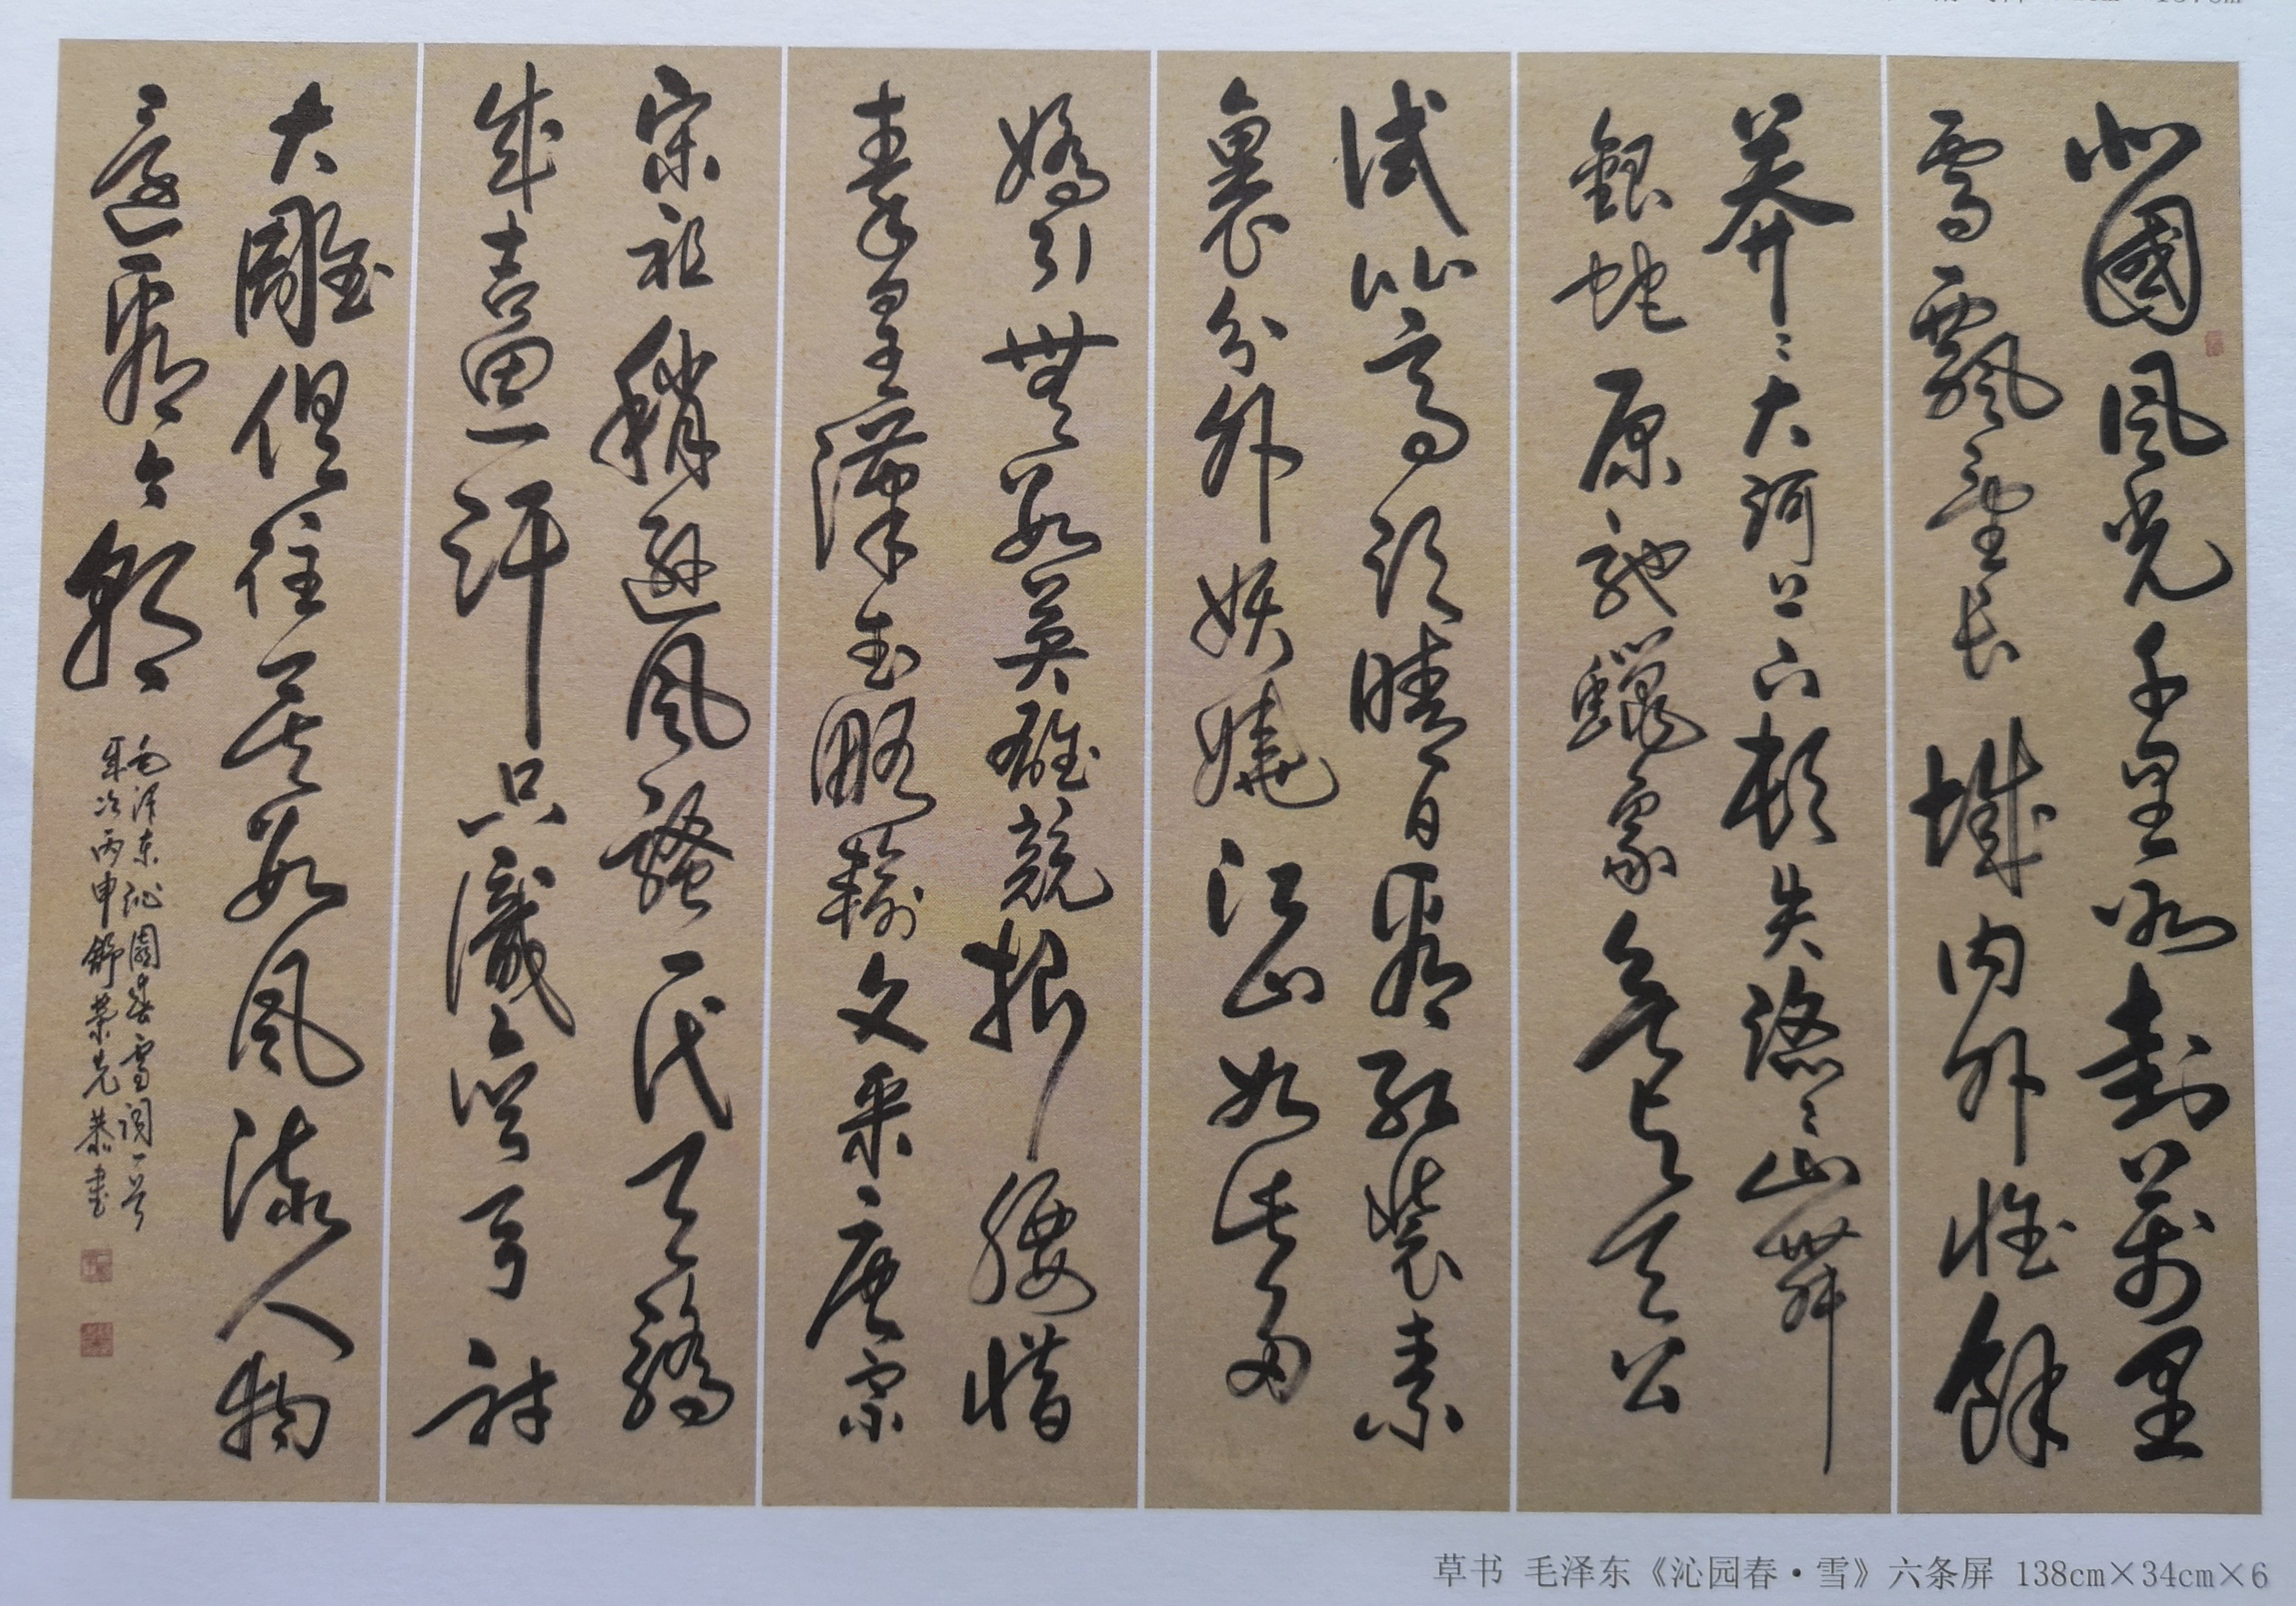 北國風光千里冰封萬里
雪飄望長城内外惟餘
莽〻大河上下頓失滔〻山舞
銀蛇原馳蠟象欲與天公
試比高須晴日看紅裝素
裹分外妖嬈江山如此多
嬌引無數英雄競折腰惜
秦皇漢武略輸文采唐宗
宋祖稍遜風騷一代天驕
成吉思汗只識彎弓射
大雕俱往矣數風流人物
還看今朝
毛澤東沁園春雪詞一首
年次丙申舒榮先恭書
草书 毛泽东《沁园春·雪》六条屏 138cm×34cm×6